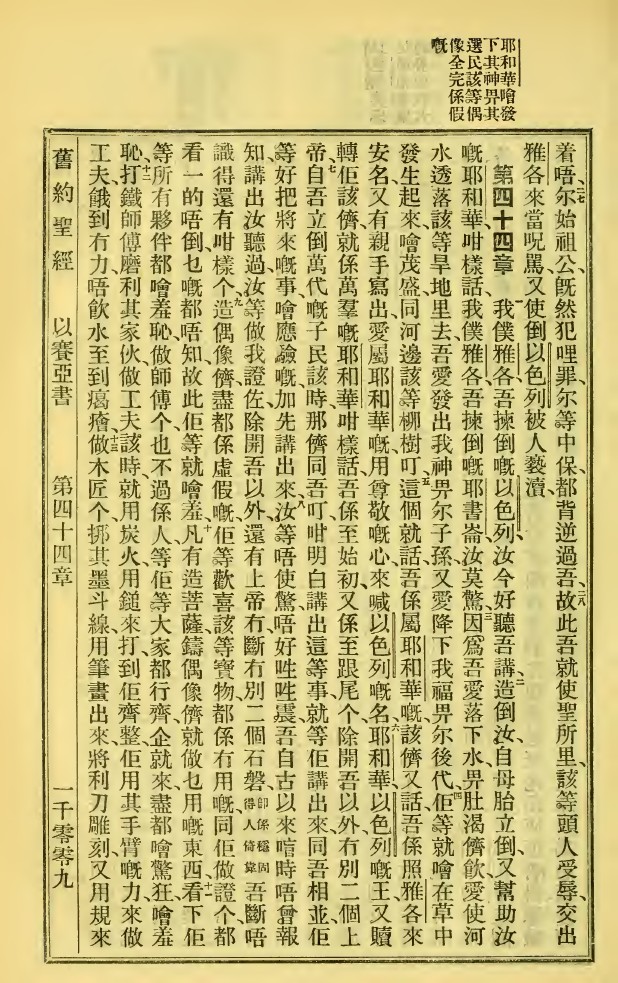 耶和華噲發
下其神畀其
選民該等偶
像全完係假
嘅
着唔尔始祖公旣然犯哩罪尔等中保都背逆過吾故此吾就使聖所里該等頭人受辱交出
雅各來當呪罵又使倒以色列被人褻瀆
第四十四章 我僕雅各吾揀倒嘅以色列汝今好聽吾講造倒汝自母胎立倒又幫助汝
嘅耶和華咁樣話我僕雅各吾揀倒嘅耶書崙汝莫驚因爲吾愛落下水畀肚渴儕飲愛使河
水透落該等旱地里去吾愛發出我神畀尔子孫又愛降下我福畀尔後代佢等就噲在草中
發生起來噲茂盛同河邊該等柳樹叮這個就話吾係屬耶和華嘅該儕又話吾係照雅各來
安名又有親手寫出愛屬耶和華嘅用尊敬嘅心來喊以色列嘅名耶和華以色列嘅王又贖
轉佢該儕就係萬羣嘅耶和華咁樣話吾係至始初又係至跟尾个除開吾以外冇別二個上
帝自吾立倒萬代嘅子民該時那儕同吾叮咁明白講出這等事就等佢講出來同吾相並佢
等好把將來嘅事噲應驗嘅加先講出來汝等唔使驚唔好呫呫震吾自古以來喑時唔曾報
知講出汝聽過汝等做我證佐除開吾以外還有上帝冇斷冇別二個石磐卽係穩固得人倚靠吾斷唔
識得還有咁樣个造偶像儕盡都係虛假嘅佢等歡喜該等寶物都係冇用嘅同佢做證个都
看一的唔倒乜嘅都唔知故此佢等就噲羞凡有造菩薩鑄偶像儕就做乜用嘅東西看下佢
等所有夥件都噲羞恥做師傅个也不過係人等佢等大家都行齊企就來盡都噲驚狂噲羞
恥打鐵師傅磨利其家伙做工夫該時就用炭火用鎚來打到佢齊整佢用其手臂嘅力來做
工夫餓到冇力唔飲水至到癘㿗做木匠个挷其墨斗線用筆畫出來將利刀雕刻又用規來
舊約聖經 以賽亞書 第四十四章 一千零零九